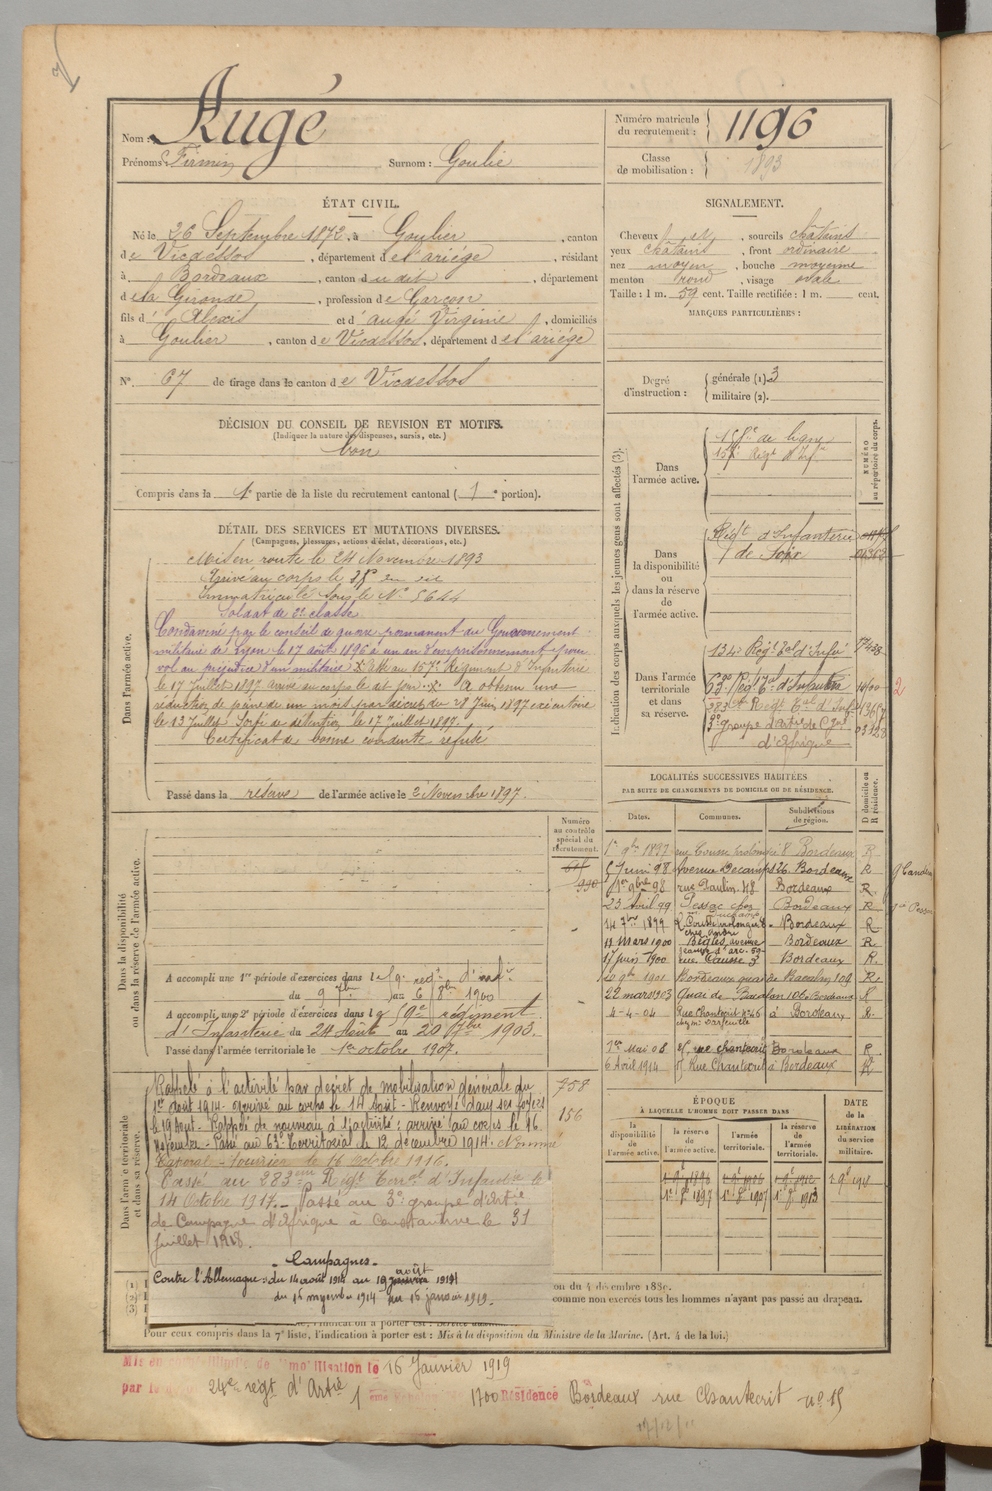 Nom : Augé
Prénoms : Firmin Surnom : Goulié
Numéro matricule du recrutement : 1196
Classe de mobilisation : 1893
ÉTAT CIVIL.
Né le 26 Septembre 1872, à Goulier, canton
de Vicdessos, département de l'ariége, résidant
à Bordeaux, canton du dit, département
de la Gironde, profession de Garçon
fils d' Alexis et d' augé Virginie, domiciliés
à Goulier, canton de Vicdessos, département de l'ariége
N° 67 de tirage dans le canton de Vicdessos
SIGNALEMENT.
Cheveux et, sourcils châtains
yeux châtains, front ordinaire
nez moyen, bouche moyenne
menton rond, visage ovale
Taille : 1 m. 59 cent. Taille rectifiée : 1 m. cent.
MARQUES PARTICULIÈRES :
Degré d'instruction : générale (1) 3
militaire (2).
DÉCISION DU CONSEIL DE REVISION ET MOTIFS.
(Indiquer la nature des dispenses, sursis, etc.)
bon
Compris dans la 1e partie de la liste du recrutement cantonal (1e portion).
DÉTAIL DES SERVICES ET MUTATIONS DIVERSES.
(Campagnes, blessures, actions d'éclat, décorations, etc.)
Dans l'armée active.
Mis en route le 24 Novembre 1893
Arrivé au corps le 25 du dit
Immatriculé sous le N° 5644
Soldat de 2e classe
Condamné par le conseil de guerre permanent du Gouvernement
militaire de Lyon le 17 août 1896 à un an d'emprisonnement pour
vol au préjudice d'un militaire au 157e Régiment d'Infanterie
le 17 Juillet 1897 arrivé au corps le dit jour. A obtenu une
réduction de peine de un mois par décret du 28 Juin 1897 exécutoire
le 13 Juillet. Sorti de détention le 17 Juillet 1897.
Certificat de bonne conduite refusé
Passé dans la réserve de l'armée active le 2 Novembre 1897.
Indication des corps auxquels les jeunes gens sont affectés (3).
NUMÉRO au répertoire du corps.
Dans l'armée active.
158e de ligne
157e Régt d'Infie
Dans la disponibilité ou dans la réserve de l'armée active.
Régt d'Infanterie
de Foix
Dans l'armée territoriale et dans sa réserve.
134e Régt Tal d'Infie
63e Régt Tal d'Infanterie
283e Régt Tal d'Infie
3e groupe d'artie de Cgne
d'Afrique
2
LOCALITÉS SUCCESSIVES HABITÉES
PAR SUITE DE CHANGEMENTS DE DOMICILE OU DE RÉSIDENCE.
D domicile ou R résidence.
Dates. Communes. Subdivisions de région.
5 Juin 98 Avenue 126 Bordeaux R
1er 9bre 98 rue Paulin 48 Bordeaux R
25 Avril 99 Pessac chez Bordeaux R
14 7bre 1899 Bordeaux R
11 Mars 1900 Bègles, avenue Jeanne d'arc. 59 Bordeaux R
17 juin 1900 rue Causse 3 Bordeaux R
9bre 1901 Bordeaux quai de Bacalan 109 R
22 mars 1903 Quai de Bacalan 106 Bordeaux R
4-4-04 Rue Chantecrit n° 46 à Bordeaux R
1er Mai 08 rue chantecrit Bordeaux R
6 Avril 1914 Rue Chantecrit à Bordeaux R
Dans la disponibilité ou dans la réserve de l'armée active.
Numéro au contrôle spécial du recrutement.
A accompli une 1re période d'exercices dans le
du 9 7bre au 6 8bre 1900
A accompli une 2e période d'exercices dans le régiment
d'Infanterie du 24 Août au 20 7bre 1903.
Passé dans l'armée territoriale le 1er octobre 1907.
Dans l'armée territoriale et dans sa réserve.
758
156
Rappelé à l'activité par décret de mobilisation générale du
1er Août 1914 arrivé au corps le 14 Août - Renvoyé dans ses foyers
le 19 Août - Rappelé de nouveau à l'activité : arrivé au corps le 16
Novembre - Passé au 63e Territorial le 12 décembre 1914. Nommé
Caporal-fourrier le 16 octobre 1916.
Passé au 283eme Régt Terr. d'Infanterie le
14 Octobre 1917. Passé au 3e groupe d'Artie
de Campagne d'Afrique à Constantine le 31
Juillet 1918.
Campagnes
Contre l'Allemagne : du 14 août 1914 au 19 août 1914
du 16 novembre 1914 au 16 janvier 1919.
ÉPOQUE
À LAQUELLE L'HOMME DOIT PASSER DANS
la disponibilité de l'armée active.
la réserve de l'armée active.
l'armée territoriale.
la réserve de l'armée territoriale.
DATE de la LIBÉRATION du service militaire.
1er 9e 1897 1er 9e 1907 1er 9e 1913
on du 4 décembre 1889.
comme non exercés tous les hommes n'ayant pas passé au drapeau.
Pour ceux compris dans la 7e liste, l'indication à porter est : Mis à la disposition du Ministre de la Marine. (Art. 4 de la loi.)
Mis en congé illimité de démobilisation le 16 Janvier 1919
par le 24e régt d'Artie 1 ème échelon 1700 Résidence Bordeaux rue Chantecrit n° 15